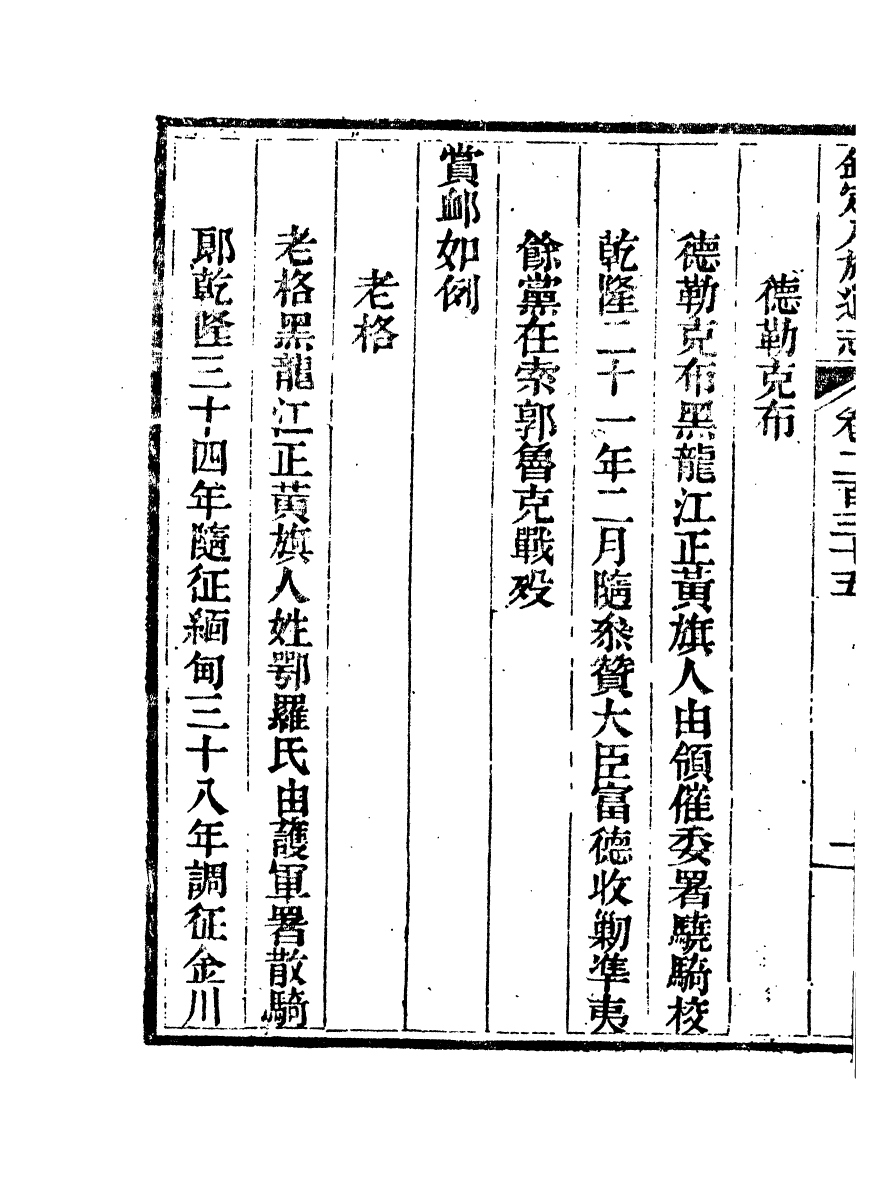 欽定八旗通志 卷二百三十五 二
德勒克布
德勒克布黑龍江正黃旗人由領催委署驍騎校
乾隆二十一年二月隨叅贊大臣富德收勦準夷
餘黨在索郭魯克戰歿
賞䘏如例
老格
老格黑龍江正黃旗人姓鄂羅氏由護軍署散騎
郎乾隆三十四年隨征緬甸三十八年調征金川